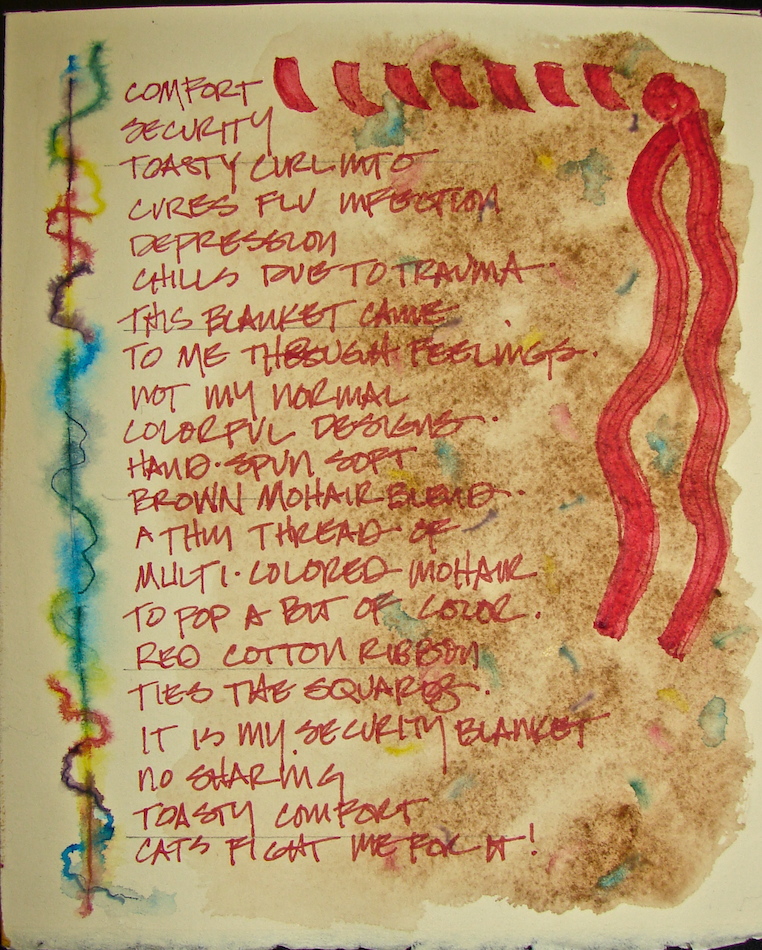 COMFORT
SECURITY
TOASTY CURL INTO
CURES FLU INFECTION
DEPRESSION
CHILLS DUE TO TRAUMA.
THIS BLANKET CAME
TO ME THROUGH FEELINGS.
NOT MY NORMAL
COLORFUL DESIGNS.
HAND-SPUN SOFT
BROWN MOHAIR BLEND.
A THIN THREAD OF
MULTI-COLORED MOHAIR
TO POP A BIT OF COLOR.
RED COTTON RIBBON
TIES THE SQUARES.
IT IS MY SECURITY BLANKET
NO SHARING
TOASTY COMFORT
CATS FIGHT ME FOR IT!